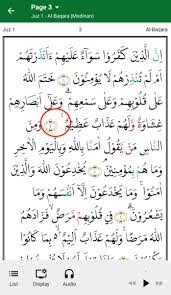 Page 3
Juz 1 - Al-Baqara (Medinan)
Juz 1 3 Al-Baqara
إِنَّ الَّذِينَ كَفَرُوا سَوَاءٌ عَلَيْهِمْ أَأَنذَرْتَهُمْ
أَمْ لَمْ تُنذِرْهُمْ لَا يُؤْمِنُونَ خَتَمَ اللَّهُ
عَلَى قُلُوبِهِمْ وَعَلَى سَمْعِهِمْ وَعَلَى أَبْصَارِهِمْ
غِشَاوَةٌ وَلَهُمْ عَذَابٌ عَظِيمٌ وَمِنَ
النَّاسِ مَن يَقُولُ آمَنَّا بِاللَّهِ وَبِالْيَوْمِ الْآخِرِ
وَمَا هُم بِمُؤْمِنِينَ يُخَادِعُونَ اللَّهَ
وَالَّذِينَ آمَنُوا وَمَا يَخْدَعُونَ إِلَّا أَنفُسَهُمْ وَمَا
يَشْعُرُونَ فِي قُلُوبِهِم مَّرَضٌ فَزَادَهُمُ
اللَّهُ مَرَضًا وَلَهُمْ عَذَابٌ أَلِيمٌ بِمَا كَانُوا
List Display Audio